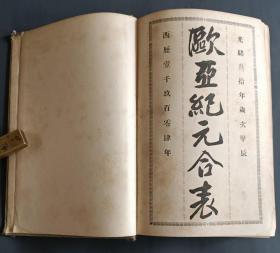 光緒叁拾年歲次甲辰
歐亞紀元合表
西歷壹千玖百零肆年